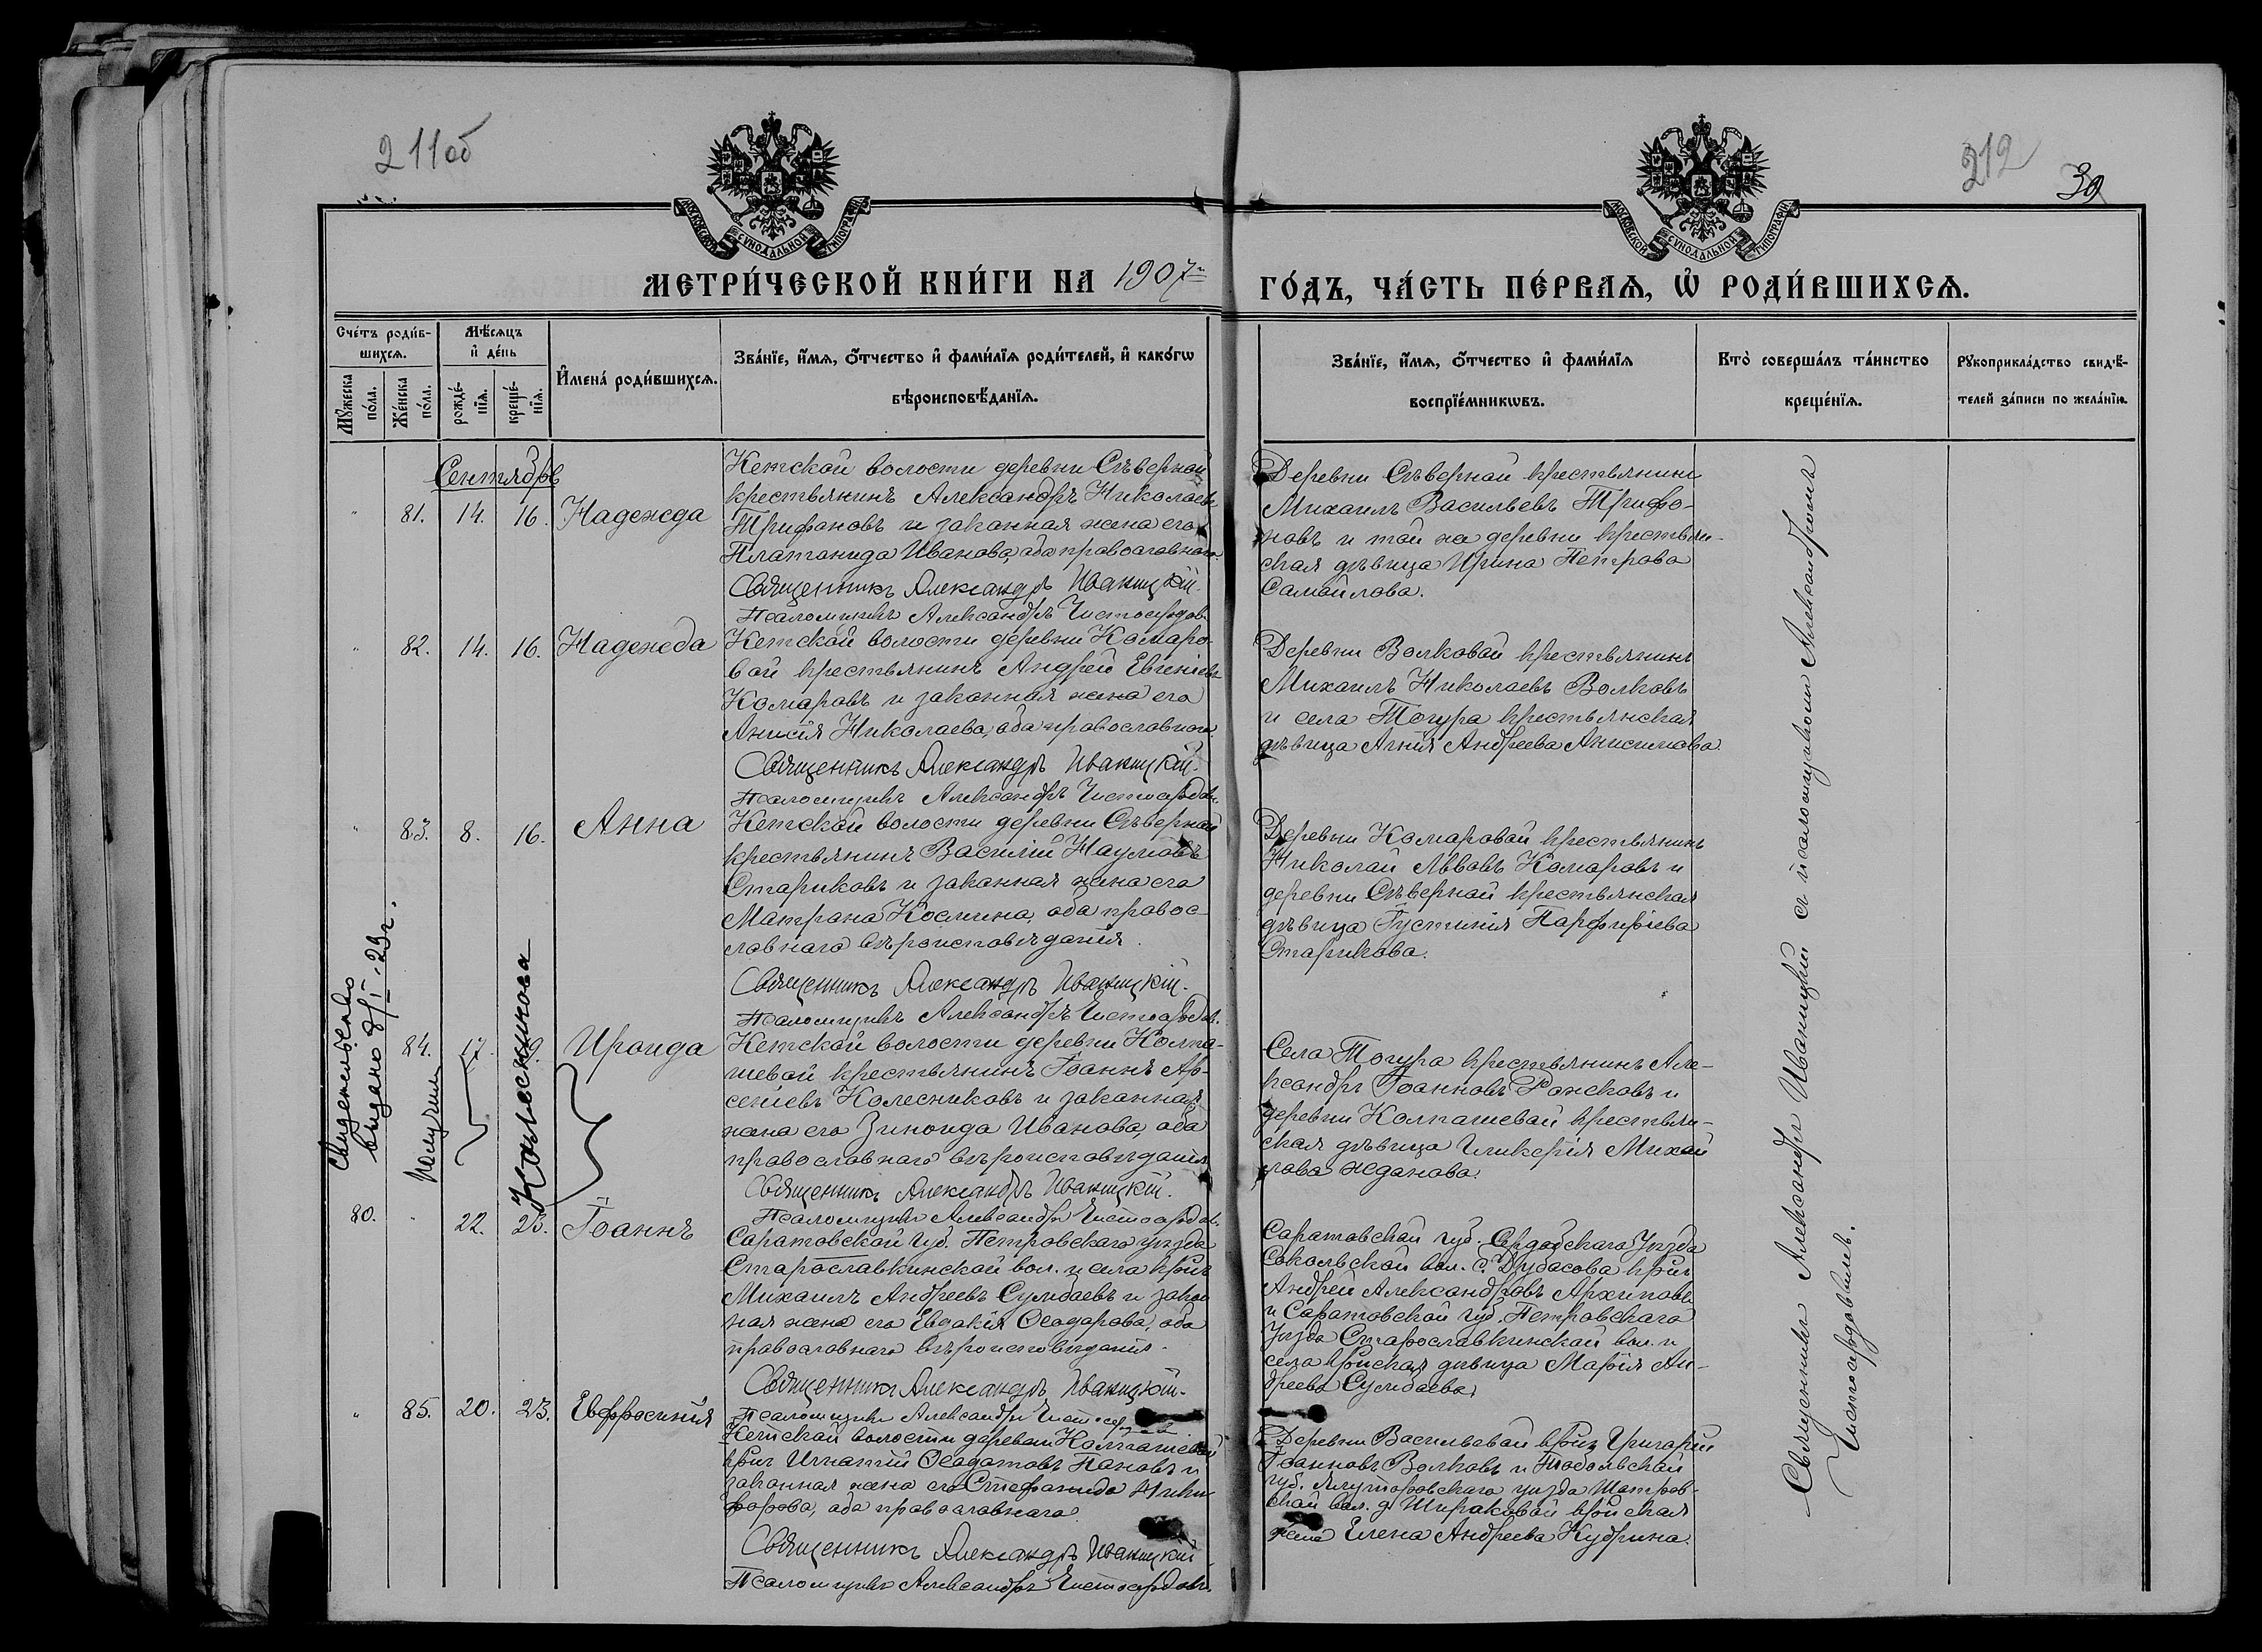 211об
212
30
МОСКОВСКОЙ СѴНОДАЛЬНОЙ ТИПОГРАФІИ
МОСКОВСКОЙ СѴНОДАЛЬНОЙ ТИПОГРАФІИ
МЕТРИ́ЧЕСКОЙ КНИ́ГИ НА 1907й ГО́ДЪ, ЧА́СТЬ ПЕ́РВАѦ, Ѡ҆ РОДИ́ВШИХСѦ.
Сче́тъ роди́в-
шихсѧ.
Мѹ́жеска
по́ла.
Же́нска
по́ла.
Мѣ́сѧцъ
и҆ де́нь
рожде́-
нїѧ.
креще́-
нїѧ.
И҆мена̀ роди́вшихсѧ.
Зва́нїе, и҆́мѧ, ѻ҆́тчество и҆ фами́лїѧ роди́телей, и҆ како́гѡ
вѣроисповѣ́данїѧ.
Зва́нїе, и҆́мѧ, ѻ҆́тчество и҆ фами́лїѧ
воспрїе́мникѡвъ.
Кто̀ соверша́лъ та́инство
креще́нїѧ.
Рѹкоприкла́дство свидѣ́-
телей за́писи по жела́нїю.
Сентябрь
" 81. 14. 16. Надежда
Кетской волости деревни Сѣверной
крестьянинъ Александръ Николаевъ
Трифоновъ и законная жена его
Платонида Иванова, оба православнаго
Священникъ Александръ Иваницкій.
Псаломщикъ Александръ Чистосердовъ.
Деревни Сѣверной крестьянинъ
Михаилъ Васильевъ Трифо-
новъ и той же деревни крестьян-
ская дѣвица Ирина Петрова
Самойлова.
" 82. 14. 16. Надежда
Кетской волости деревни Комаро-
вой крестьянинъ Андрей Евгеніевъ
Комаровъ и законная жена его
Анисія Николаева, оба православнаго
Священникъ Александръ Иваницкій.
Псаломщикъ Александръ Чистосердовъ.
Деревни Волковой крестьянинъ
Михаилъ Николаевъ Волковъ
и села Тогура крестьянская
дѣвица Агнія Андреева Анисимова.
" 83. 8. 16. Анна
Кетской волости деревни Сѣверной
крестьянинъ Василій Наумовъ
Стариковъ и законная жена его
Матрона Космина, оба правос-
лавнаго вѣроисповѣданія.
Священникъ Александръ Иваницкій.
Псаломщикъ Александръ Чистосердовъ.
Деревни Комаровой крестьянинъ
Николай Львовъ Комаровъ и
деревни Сѣверной крестьянская
дѣвица Іустинія Парфиріева
Старикова.
84. 17. 19. Ираида
Кетской волости деревни Колпа-
шевой крестьянинъ Іоаннъ Ар-
сеніевъ Колесниковъ и законная
жена его Зиноида Иванова, оба
православнаго вѣроисповѣданія
Священникъ Александръ Иваницкій.
Псаломщикъ Александръ Чистосердовъ.
Села Тогура крестьянинъ Але-
ксандръ Іоанновъ Рожковъ и
деревни Колпашевой крестьян-
ская дѣвица Гликерія Михай
лова Жданова.
Свидетельство
выдано 8/I-23г.
Получил
Колесникова
80. " 22. 23. Іоаннъ
Саратовской губ. Петровскаго уѣзда
Старославкинской вол. и села кр-нъ
Михаилъ Андреевъ Сумбаевъ и закон
ная жена его Евдокія Ѳеодорова, оба
православнаго вѣроисповѣданія.
Священникъ Александръ Иваницкій.
Псаломщикъ Александръ Чистосер
Саратовской губ. Сердобскаго Уѣзда
Сокольской вол. с. Дубасова кр-нъ
Андрей Александровъ Архиповъ
и Саратовской губ. Петровскаго
Уѣзда Старославкинской вол. и
села кр-нская дѣвица Марія Ан-
дреева Сумбаева.
" 85. 20. 23. Евфросинія
Кетской волости деревни Колпашевой
кр-нъ Игнатій Ѳеодотовъ Пановъ и
законная жена его Стефанида Ники
форова, оба православнаго
Священникъ Александръ Иваницкій
Псаломщикъ Александръ Чистосердовъ.
Деревни Васильевой кр-нъ Григорій
Іоанновъ Волковъ и Тобольской
губ. Ялуторовскаго уѣзда Шатров-
ской вол. д. Шираковой кр-нская
жена Елена Андреева Кудрина.
Священникъ Александръ Иваницкій съ псаломщикомъ Александромъ
Чистосердовымъ.